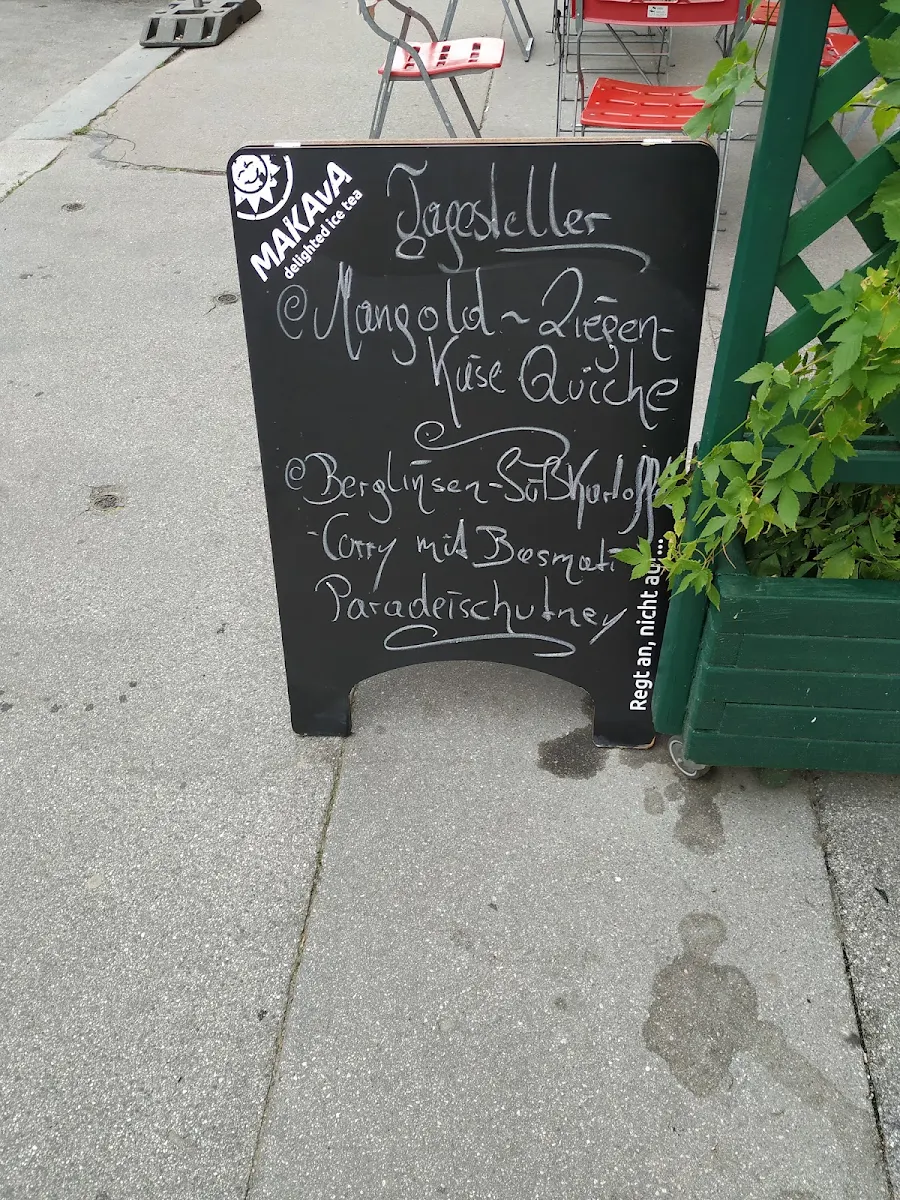 MAKAvA
delighted ice tea
Tagesteller
@ Mangold ~ Ziegen-
Käse Quiche
@ Berglinsen-Süßkartoff
-Curry mit Basmati
Paradeischutney
Regt an, nicht auf...